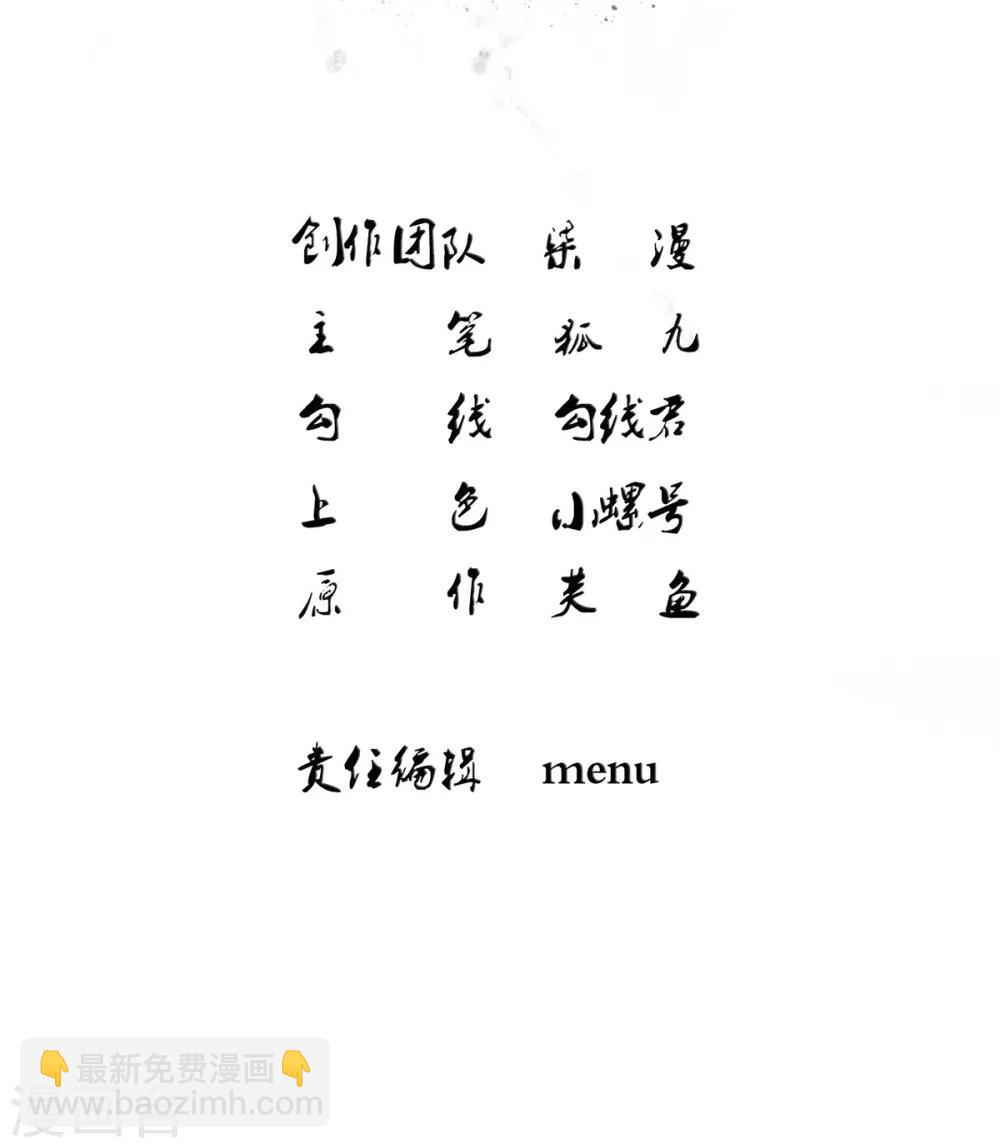 创作团队 柒漫
主笔 狐九
勾线 勾线君
上色 小螺号
原作 芙鱼
责任编辑 menu
👇最新免费漫画👇
www.baozimh.com
漫画台